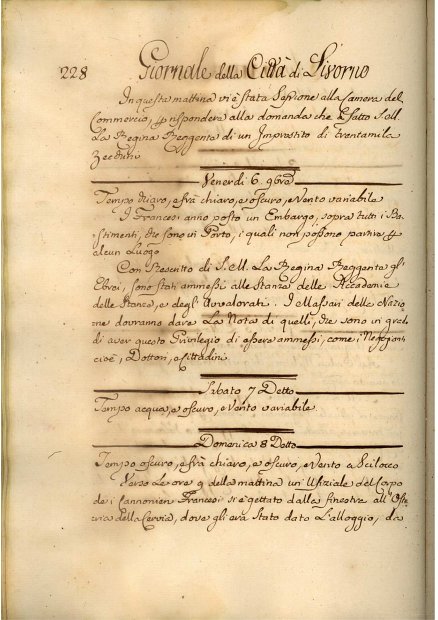 228 Giornale della Città di Livorno
In questa mattina vi è stata Sessione alla Camera del
Commercio, p rispondere alla domanda che à fatto S. M.
La Regina Reggente di un Imprestito di trentamila
Zecchini
Venerdi 6. 9bre
Tempo chiaro, e frà chiaro, e oscuro, e Vento variabile
I Francesi anno posto un Embargo, sopra tutti i Ba-
stimenti, che sono in Porto, i quali non possono partire p
alcun Luogo
Con Rescritto di S. M. La Regina Reggente gl'
Ebrei, sono stati ammessi alle Stanze delle Accademie
delle Stanze, e degl' Avvalorati. I Massari delle Nazio
ne dovranno dare La Nota di quelli, che sono in grado
di aver questo Privilegio di essere ammessi, come i Negozianti
cioè, Dottori, e Cittadini
Sabato 7 Detto
Tempo acqua, e oscuro, e Vento variabile.
Domenica 8 Detto
Tempo oscuro, e frà chiaro, e oscuro, e Vento a Scilocco
Verso Le ore 9 della mattina un' Ufiziale del Corpo
de i Cannonieri Francesi si è gettato dalla finestra all' Oste
ria della Cervia, dove gli era Stato dato L'alloggio, da